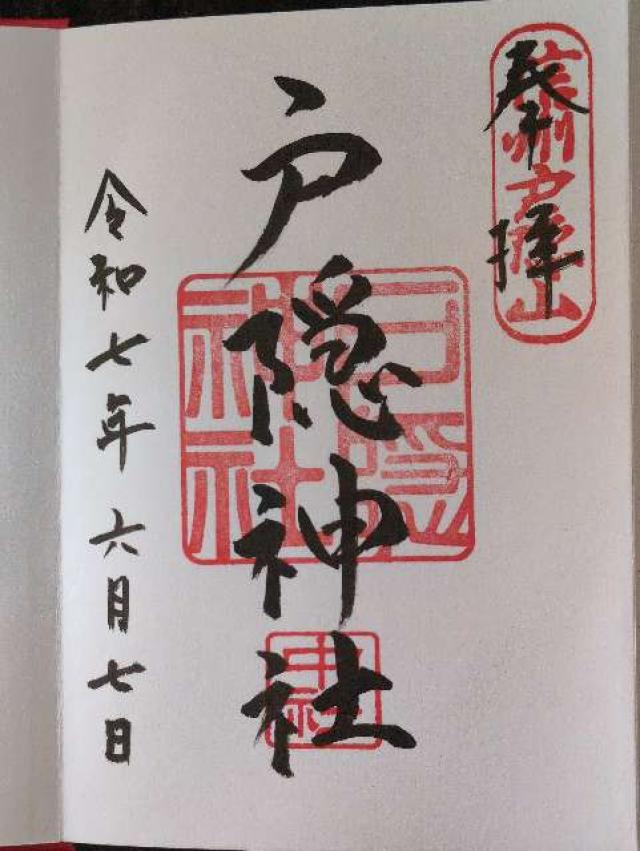 奉拝
信州戸隠山
戸隠神社
戸隠
神社
中社
令和七年六月七日